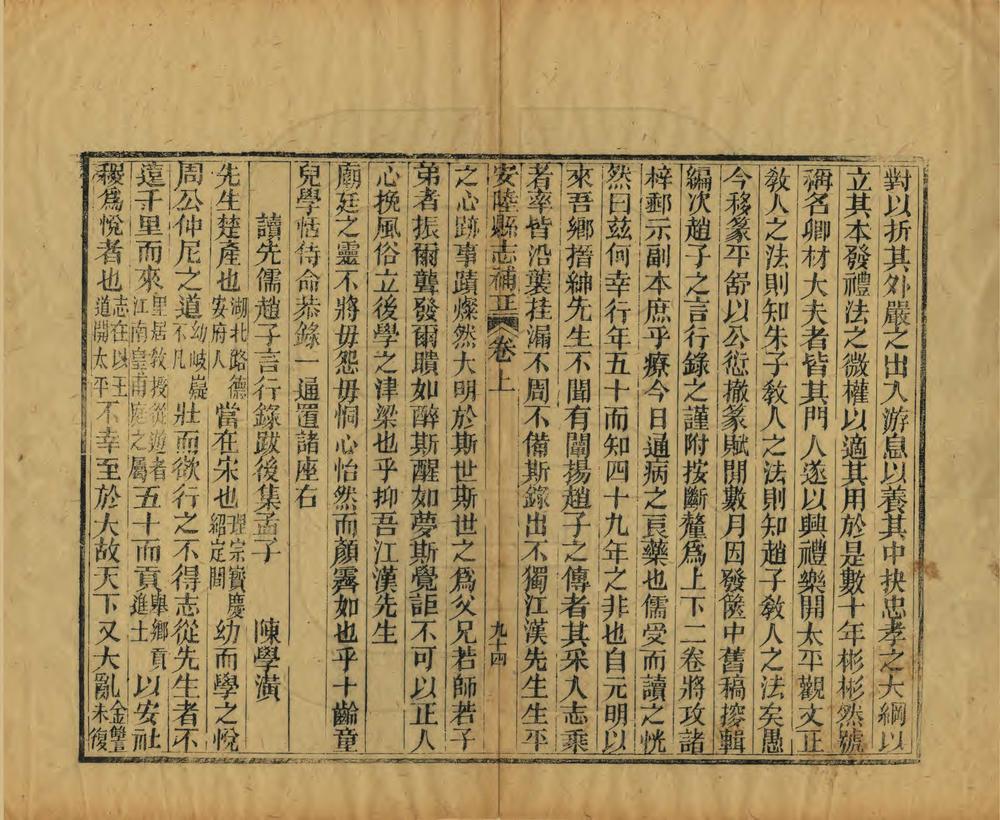 對以折其外嚴之出入游息以養其中抉忠孝之大綱以
立其本發禮法之微權以適其用於是數十年彬彬然號
稱名卿材大夫者皆其門人遂以興禮樂開太平觀文正
敎人之法則知朱子敎人之法則知趙子敎人之法矣愚
今移篆平舒以公愆撤篆賦閒數月因發篋中舊稿撡輯
編次趙子之言行錄之謹附按斷釐爲上下二卷將攻諸
梓郵示副本庶乎療今日通病之良藥也儒受而讀之恍
然曰兹何幸行年五十而知四十九年之非也自元明以
來吾鄉搢紳先生不聞有闡揚趙子之傳者其采入志乘
者率皆沿襲挂漏不周不備斯錄出不獨江漢先生生平
安陸縣志補正 卷上 九十四
之心跡事蹟燦然大明於斯世斯世之爲父兄若師若子
弟者振爾聾發爾聵如醉斯醒如夢斯覺詎不可以正人
心挽風俗立後學之津梁也乎抑吾江漢先生
廟廷之靈不將毋怨毋恫心怡然而顏霽如也乎十齡童
兒學恬待命恭錄一通置諸座右
讀先儒趙子言行錄跋後集孟子 陳學潢
先生楚產也湖北路德安府人當在宋也理宗寳慶紹定間幼而學之悅
周公仲尼之道幼岐嶷不凡壯而欲行之不得志從先生者不
遠千里而來里居敎授從遊者江南皇甫庭之屬五十而貢舉鄉貢進士以安社
稷爲悅者也志在以王道開太平不幸至於大故天下又大亂金讐未復